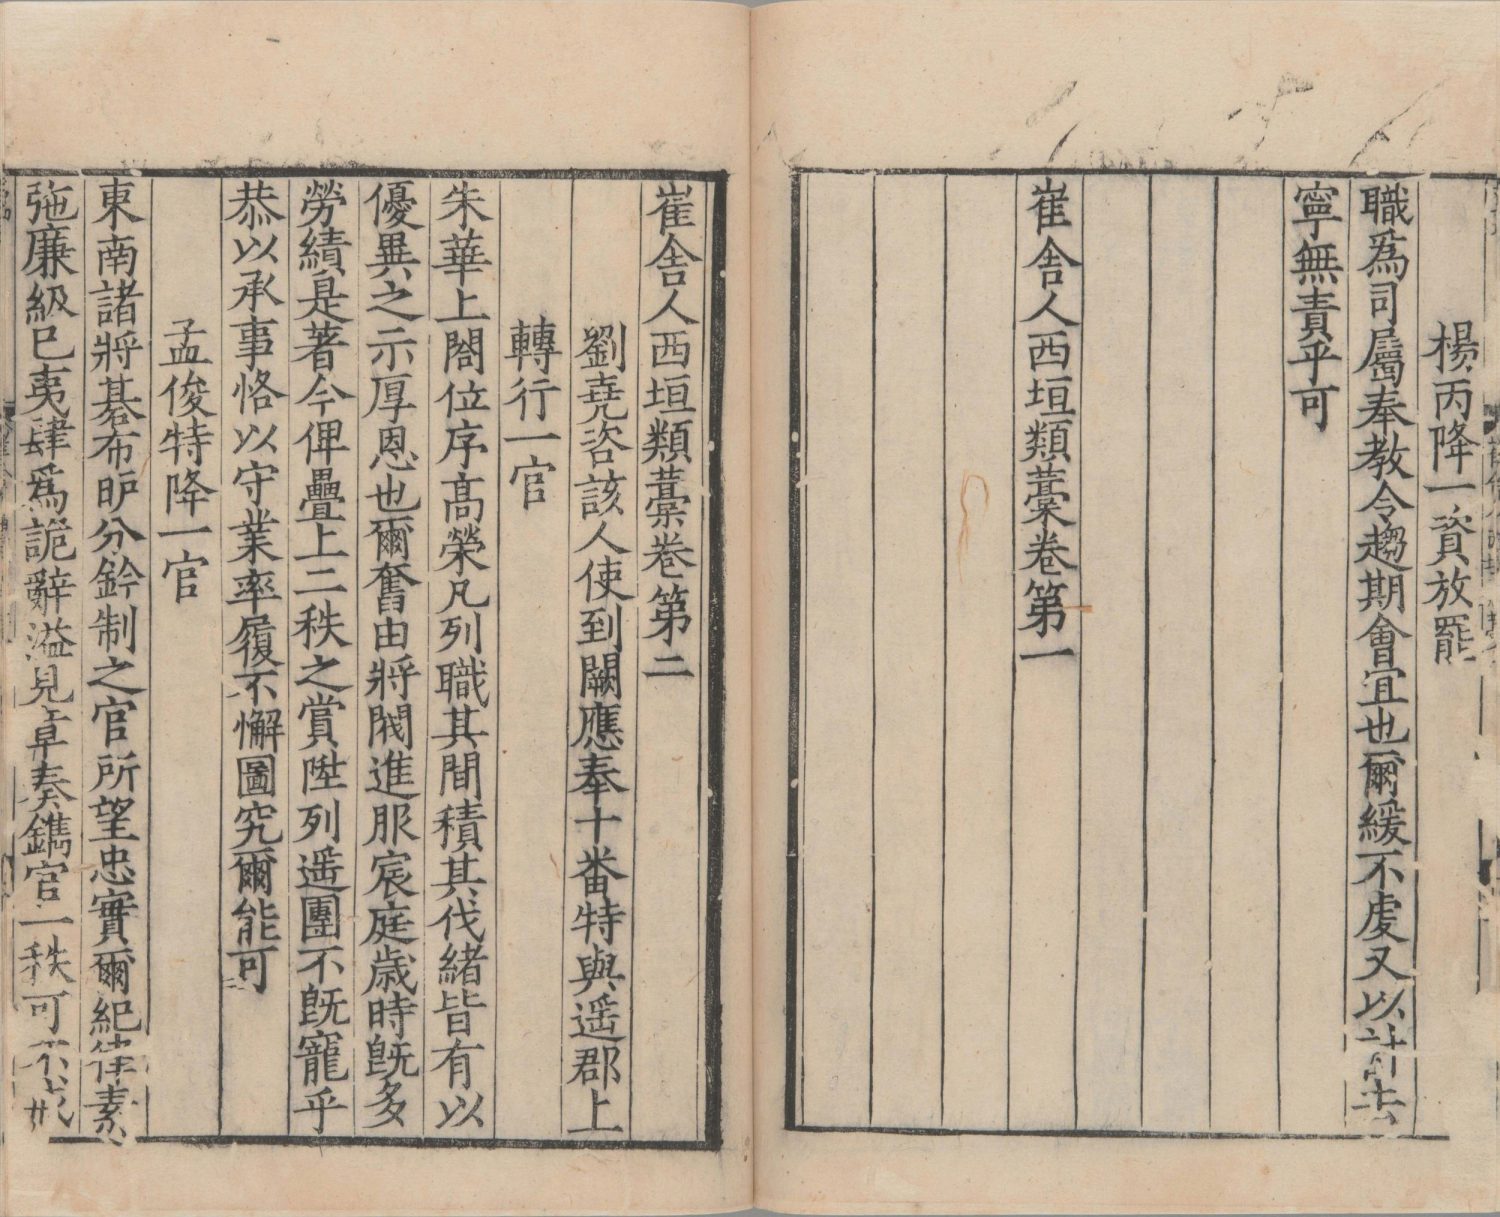 楊丙降一資放罷
職爲司屬奉教令趨期會宜也爾緩不虔又以計去
寧無責乎可
崔舍人西垣類藁卷第一
崔舍人西垣類藁卷第二
劉堯咨該人使到闕應奉十番特與遥郡上
轉行一官
朱華上閤位序高榮凡列職其間積其伐緒皆有以
優異之示厚恩也爾奮由將閥進服宸庭歲時旣多
勞績是著今俾疊上二秩之賞陞列遥團不旣寵乎
恭以承事恪以守業率履不懈圖究爾能可
孟俊特降一官
東南諸將碁布昈分鈐制之官所望忠實爾紀律素
弛廉級已夷肆爲詭辭溢見章奏鐫官一秩可不戒